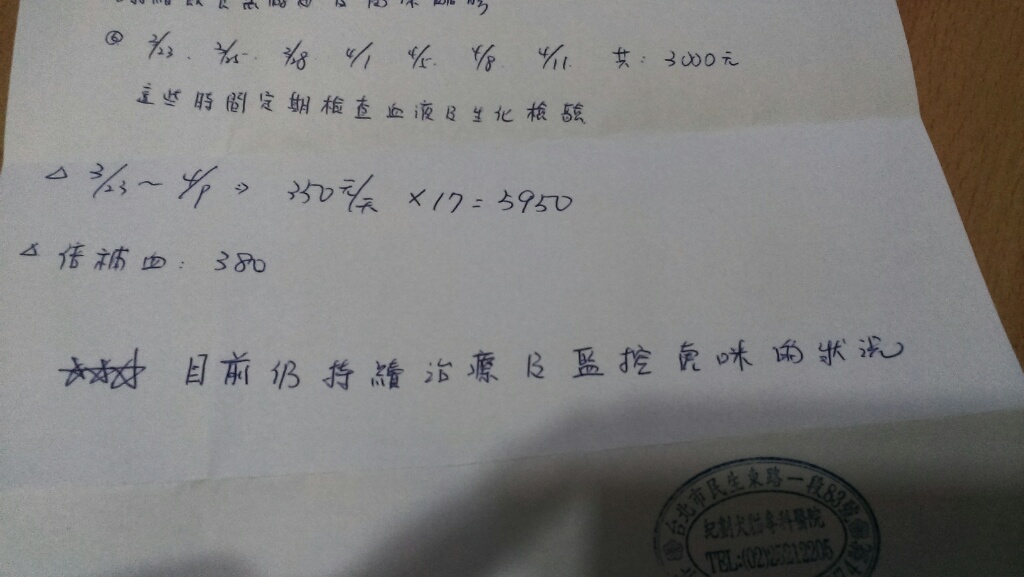 ⑥ 3/23. 3/25. 3/28 4/1 4/5. 4/8. 4/11. 共: 3000元
這些時間定期檢查血液及生化檢驗
△ 3/23～4/9 ⇒ 350元/天 ×17=5950
△ 倍補血: 380
☆☆☆ 目前仍持續治療及監控虎咪的狀況
台北市民生東路一段83號
犬貓專科醫院
TEL:(02)